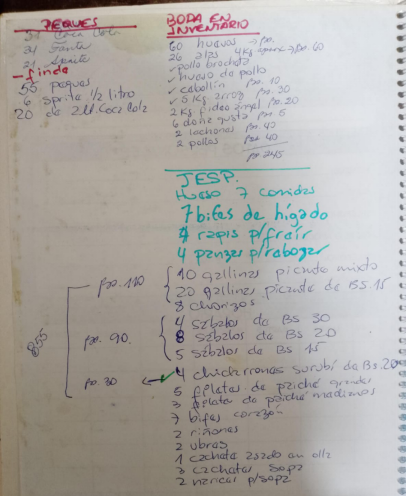 PEQUES
31 Coca Cola
21 Fanta
21 Sprite
- finde
55 peques
6 Sprite 1/2 litro
20 de 2lt. Coca Cola
BODA EN INVENTARIO
60 huevos → po.
26 alas 4kg → po. 60
✓ pollo brochita
✓ hueso de pollo
✓ cabellin po. 10
✓ 5 Kg arroz po. 30
2 Kg fideo angel po. 20
6 doña gusta po. 5
2 lechonas po. 40
2 pollos po. 40
po. 245
JESP.
Hueso 7 comidas
7 bifes de hígado
4 rapis p/freír
4 panzas p/rabogar
po. 110
10 gallinas picante mixto
20 gallinas picante de BS. 15
8 chorizos
855
po. 90.
4 sábalos de BS 30
8 sábalos de BS 20
5 sábalos de BS 15
po. 30
4 chicharrones surubí de Bs. 20
5 filetes de paiche grandes
3 filetes de paiche medianos
7 bifes corazón
2 riñones
2 ubras
1 cachata asado en olla
3 cachatas sopa
2 narices p/sopa